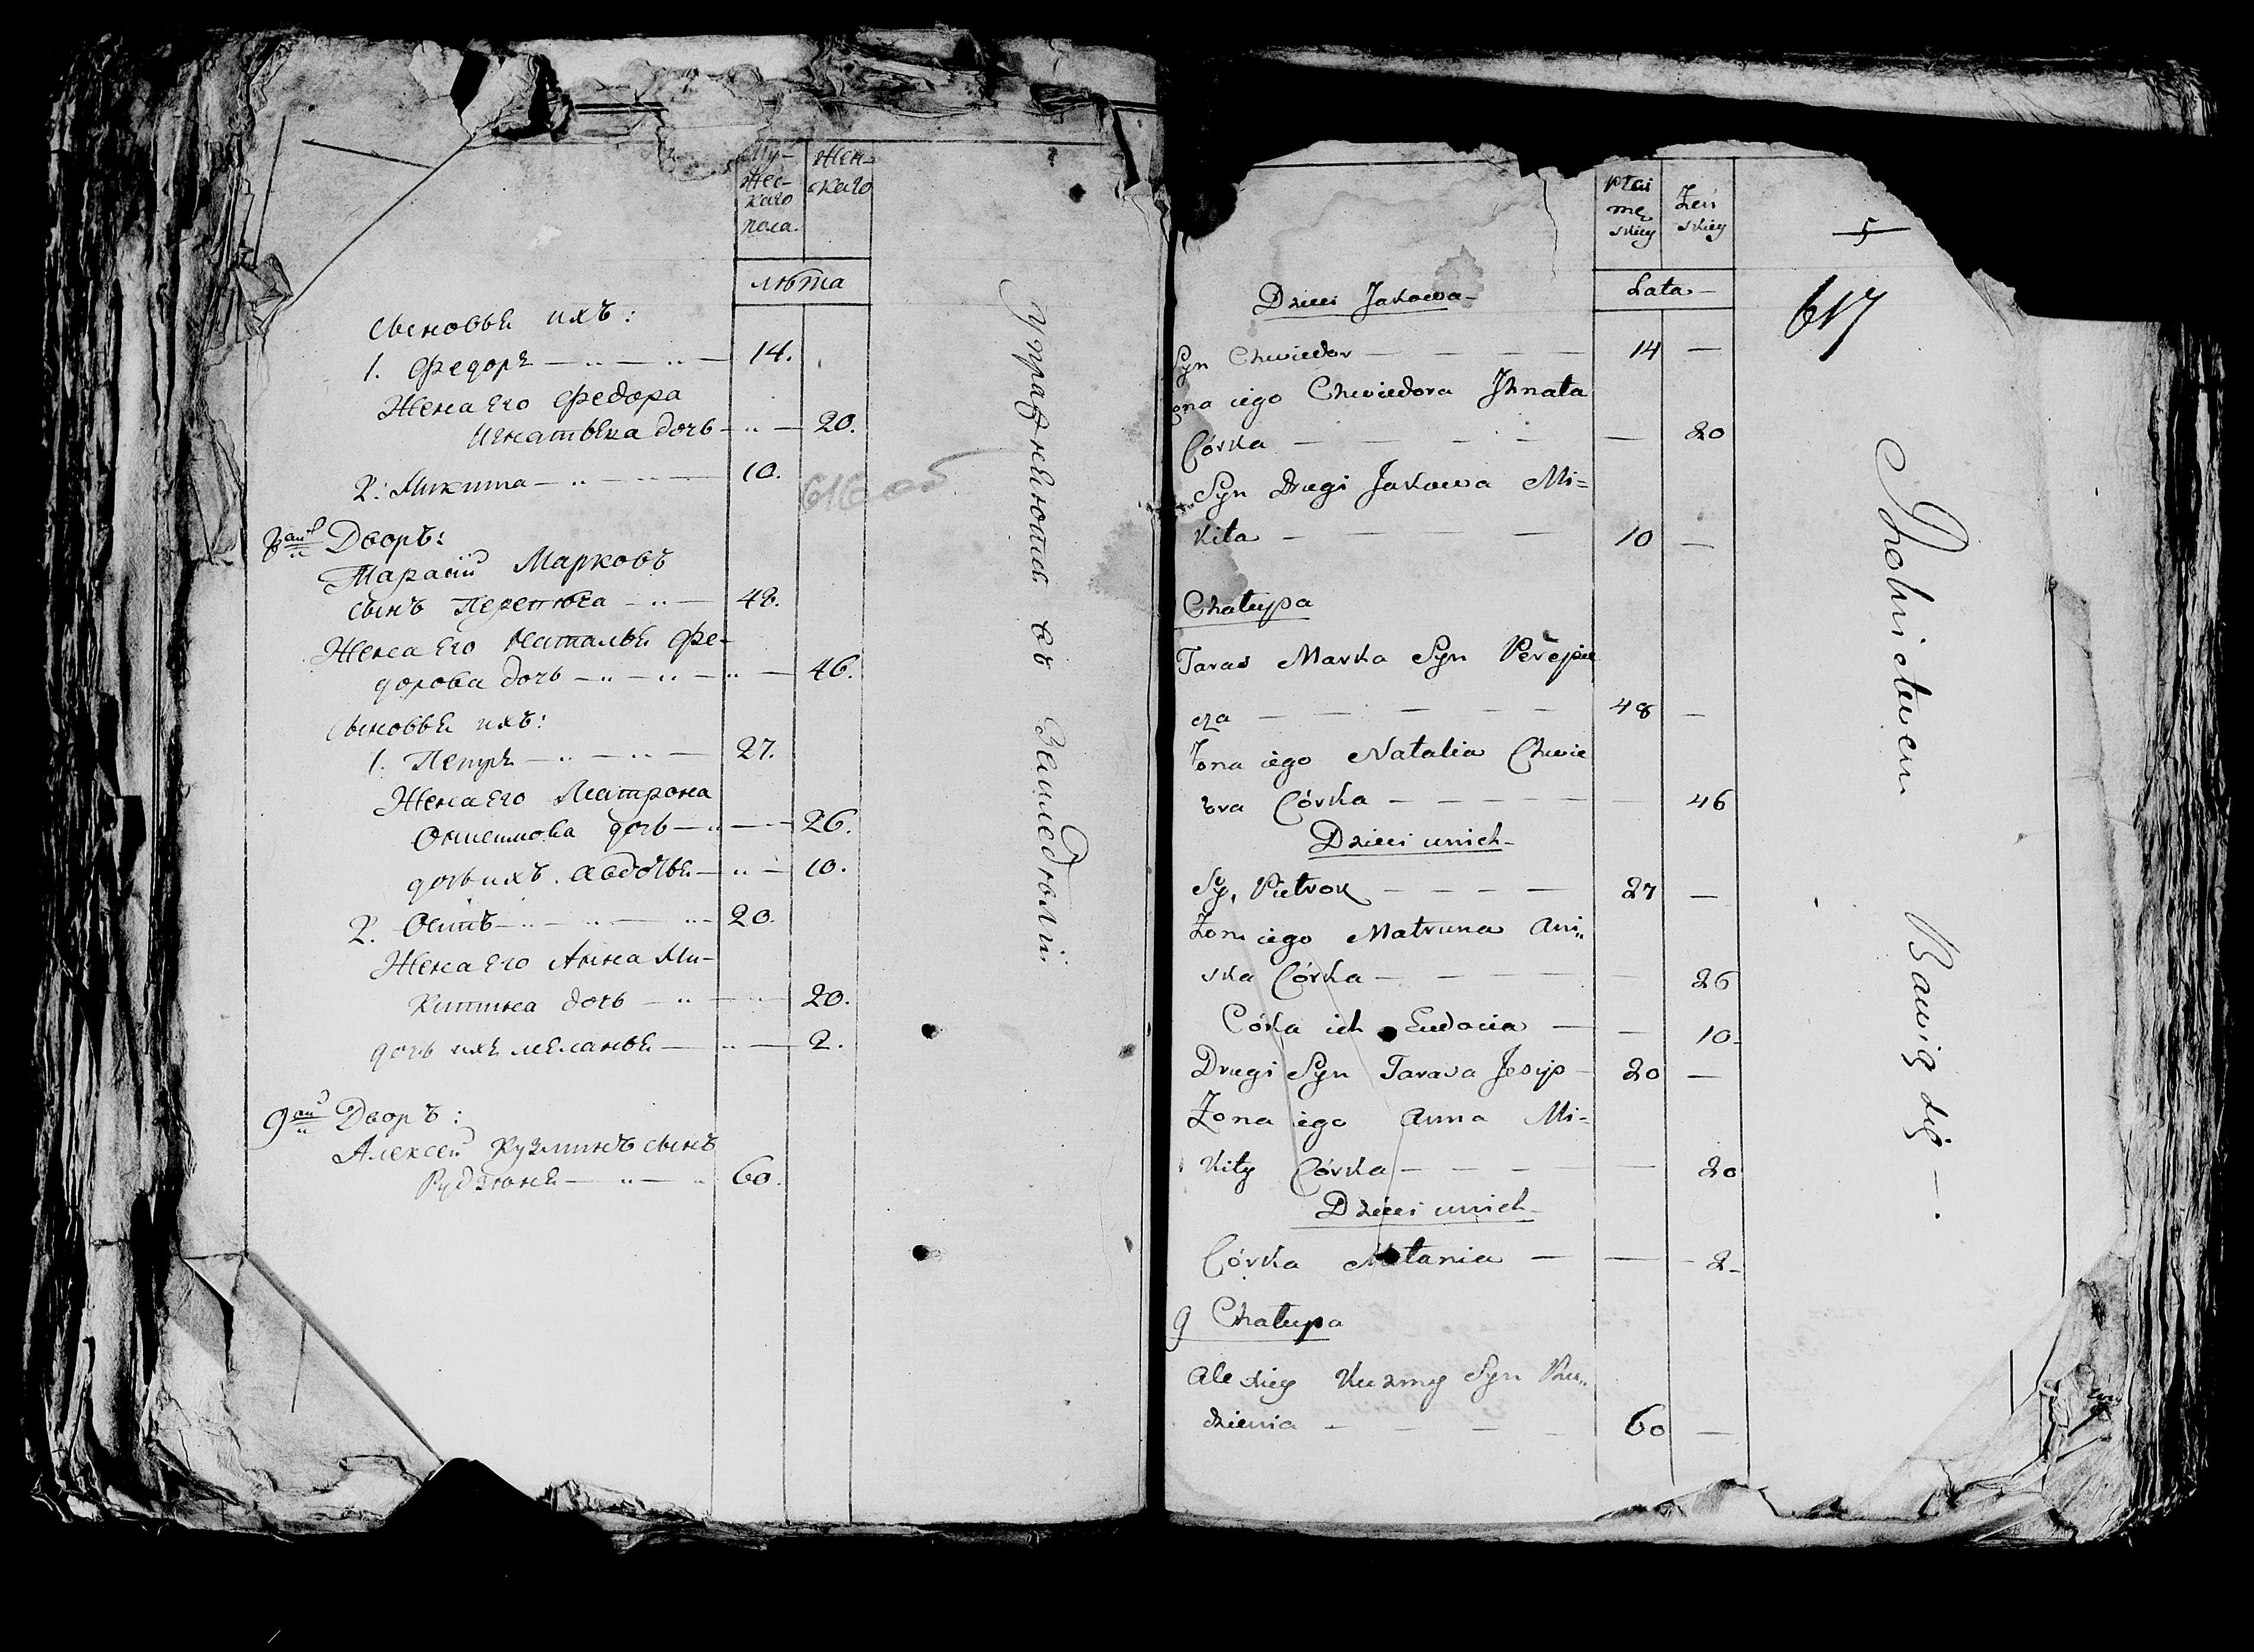 Му-
жес-
каго
пола.
Жен-
скаго
лѣта
сыновья ихъ:
1. Федоръ — 14.
Жена его Федора
Игнатьева дочь — 20.
2. Микита — 10.
8ый Дворъ:
Тарасій Марковъ
сынъ Перепѣча — 48.
Жена его Наталья Фе-
дорова дочь — 46.
сыновья ихъ:
1. Петръ — 27.
Жена его Матрона
дочь — 26.
дочь ихъ Авдотья — 10.
2. Осипъ — 20.
Жена его Анна Ми-
китина дочь — 20.
дочь ихъ Меланья — 2.
9ый Дворъ:
Алексей Кузминъ сынъ
Рудзюня — 60.
616 об
Упражняются въ Земледѣліи
Płci
mę
skiey
Żeń
skiey
Lata
5
617
Dzieci Jakowa
Syn Chwiedor — 14 —
ona iego Chwiedora Ihnata
Córka — — 20
Syn Drugi Jakowa Mi=
kita — 10 —
Chałupa
Taras Marka Syn Perepie
cza — 48 —
Żona iego Natalia Chwie
dra Córka — 46
Dzieci unich
Sy. Pietrok — 27 —
Żona iego Matruna Ani„
ska Córka — 26
Córka ich Eudocia — 10
Drugi Syn Tarasa Jesyp 20 —
Żona iego Anna Mi-
kity Córka — 20
Dzieci unich
Córka Mełania — 2
9 Chałupa
Alexiey Kuzmy Syn Ru„
dzienia — 60 —
Rolnictwem Bawią się —.